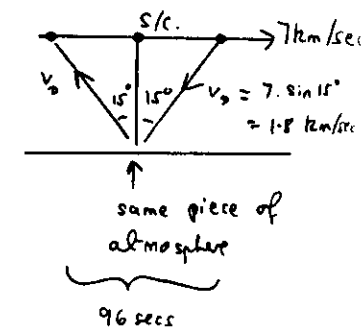 S/C.
7km/sec
V_D
15°
15°
V_D = 7. sin 15°
= 1.8 km/sec
same piece of
atmosphere
96 secs